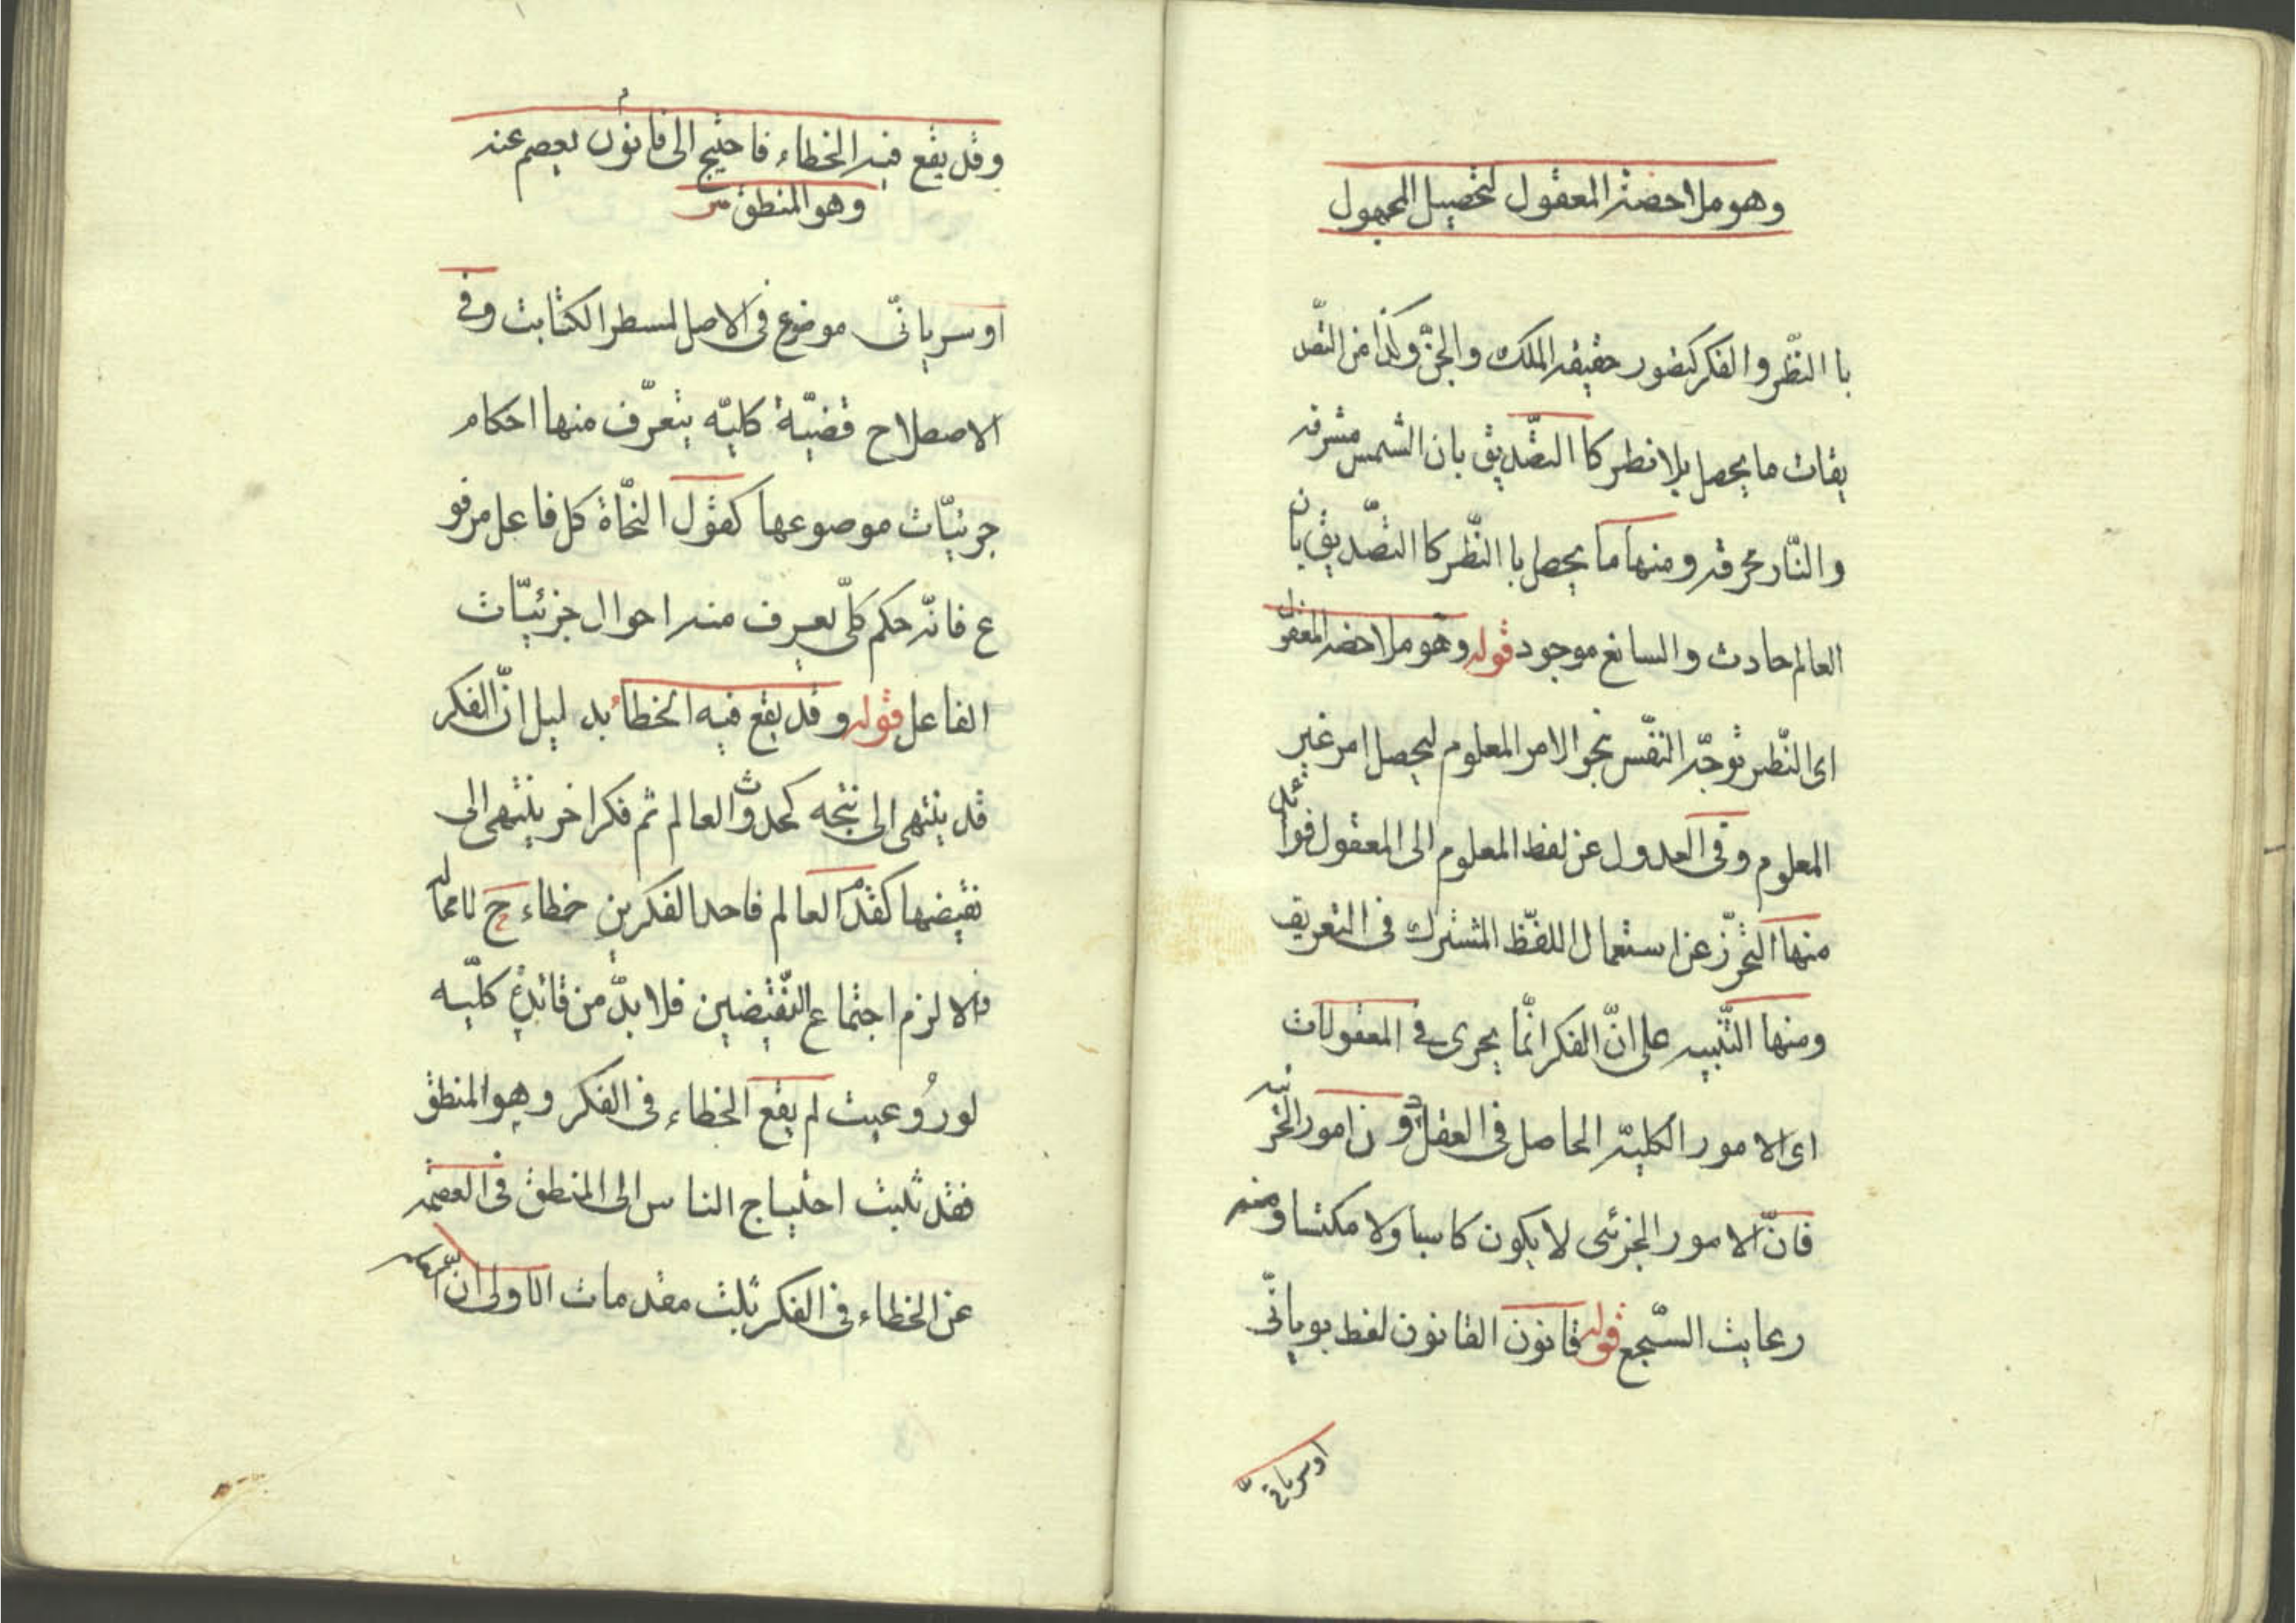 وهو ملاحضة المعقول لتحصيل المجهول
با النّظر والفكر كتصور حقيقة الملك والجنّ وكذا من التّصد
يقات ما يحصل بلا نظر كا التّصديق بان الشمس مشرقه
والنّار محرقة ومنها ما يحصل با النّظر كا التصّديق بان
العالم حادث والسانع موجود قوله وهو ملاحضة المعقول
اى النّظر توجّه النفّس نحو الامر المعلوم ليحصل امر غير
المعلوم وفى العدول عن لفظ المعلوم الى المعقول فوائد
منها التحّرز عن استعمال اللفّظ المشترك فى التعريف
ومنها التّنبيه على انّ الفكر انّما يجرى فى المعقولات
اى الامور الكلية الحاصل فى العقل دون امور الجزئيه
فانّ الامور الجزئى لا يكون كاسبا ولا مكتسبا ومنه
رعايت السّجع قوله قانون القانون لفظ يويانّى
او سريانىّ
وقد يقع فيه الخطاء فاحتيج الى قانون يعصم عنه
وهو المنطق
او سريانىّ موضوع فى الاصل لمسطر الكتابت وفى
الاصطلاح قضيّة كليّه يتعرّف منها احكام
جزئيّات موصوعها كقول النّحاة كل فاعل مرفو
ع فانّه حكم كلّى يعرف منه احوال جزئيّات
الفاعل قوله وقد يقع فيه الخطاء بدليل انّ الفكر
قد ينتهى الى نتجه كحدوث العالم ثم فكر اخر ينتهى الى
نقيضها كقدم العالم فاحد الفكرين خطاء ح لا محاله
والا لزم اجتماع النّقيضين فلا بدّ من قائدة كلّيه
لو رُوعيت لم يقع الخطاء فى الفكر وهو المنطق
فقد ثلبت احتياج الناس الى المنطق فى العصمه
عن الخطاء فى الفكر بثلث مقدمات الاولى ان